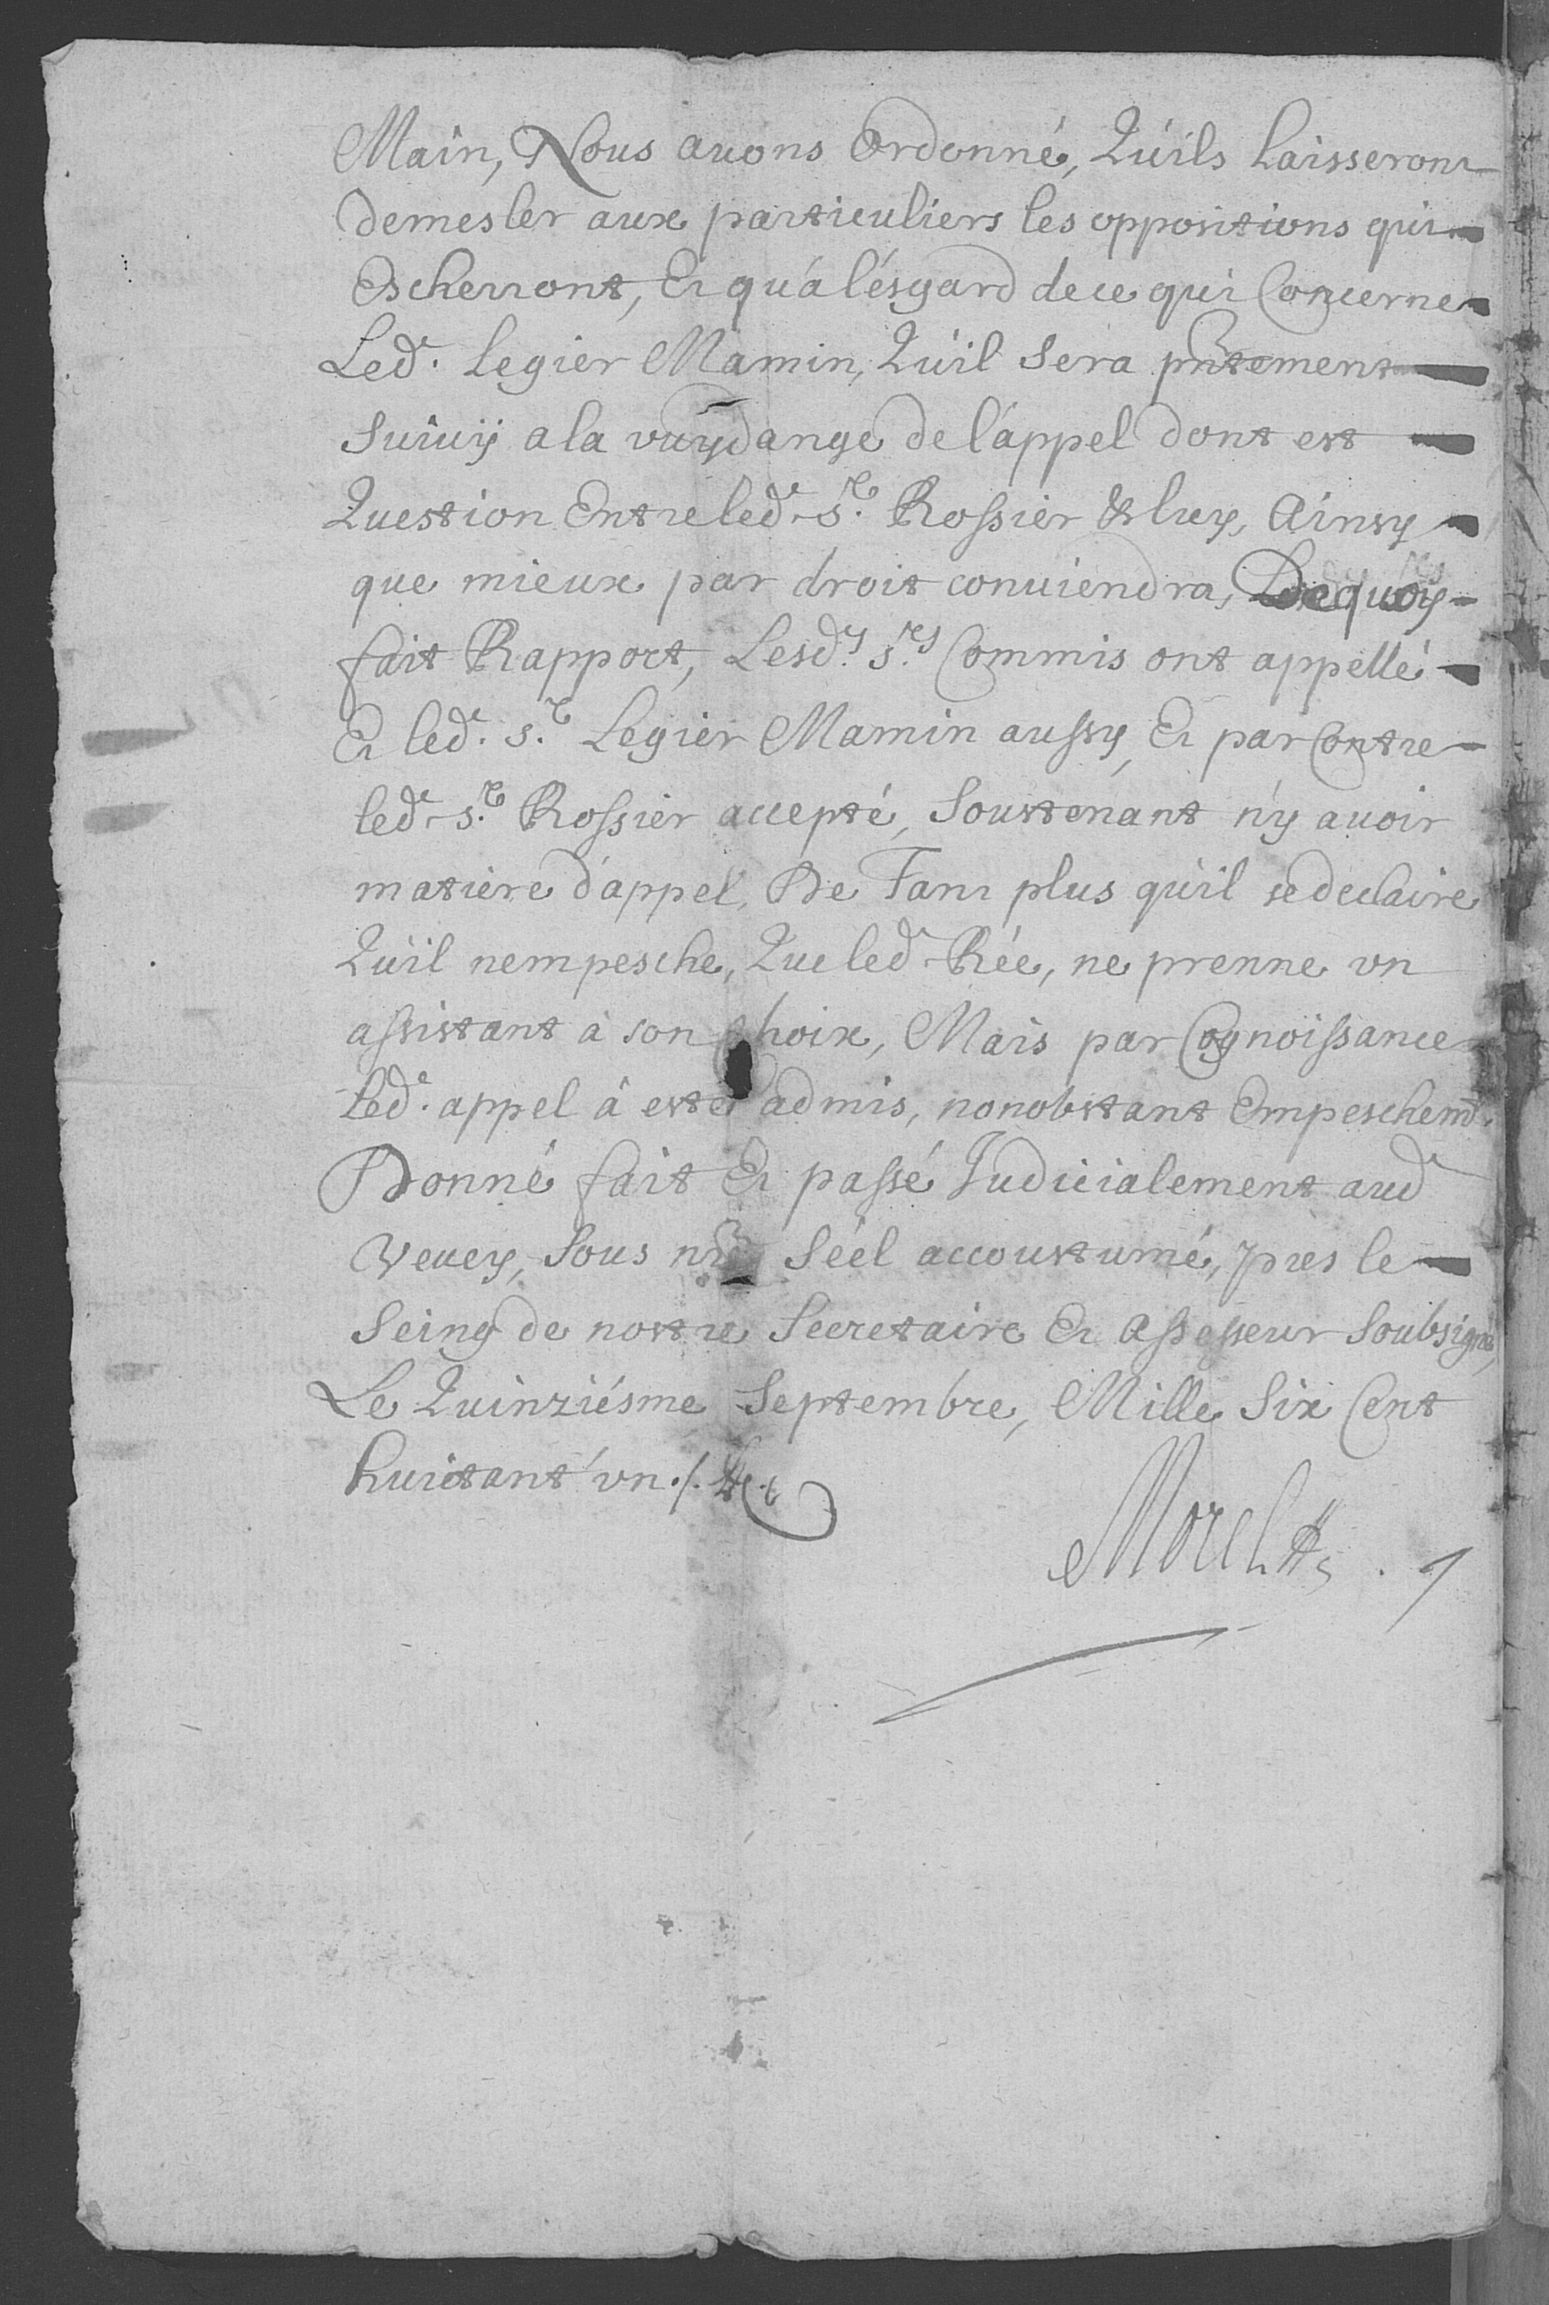 Main, Nous auons Ordonné, Qu'ils Laisseront
demesler aux particuliers les oppositions qui
Escherront, Et qu'a l'ésgard de ce qui Concerne
Led. Legier Mamin, Qu'il sera pntement
suiuÿ a la vuÿdange de l'appel dont est
Question Entre led. Sr. Rossier & luy, Ainsy
que mieux par droit conuiendra, Dequoy
fait Rapport, Lesd.s Srs Commis ont appellé
Et led. Sr. Legier Mamin aussy, Et par Contre
led. Sr. Rossier accepté, Soustenant n'y auoir
matiere d'appel, De Tant plus qu'il se declaire
Qu'il nempesche, Que led. Rée, ne prenne vn
assistant à son choix, Mais par Cognoissance
Led. appel à esté admis, nonobstant Empeschemt.
Donné fait Et passé Judicialement aud
Veuey, Sous nre Séel accoustumé, pres le
Seing de nostre Secretaire Et Assesseur Soubsigné,
Le Quinziésme Septembre, Mille Six Cent
huictant'vn ./.
Morel